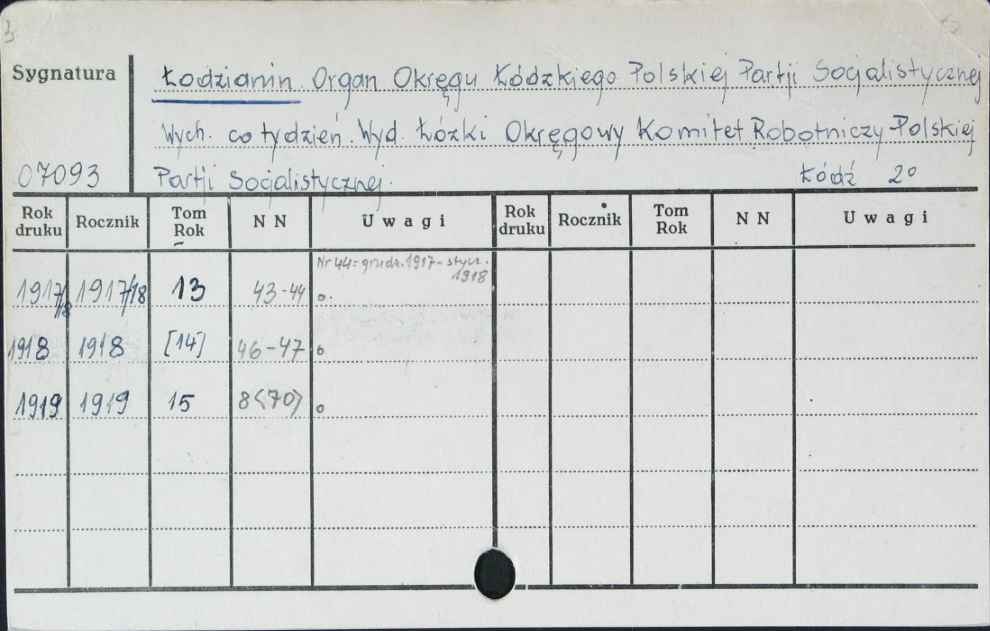 3
Sygnatura
Łodzianin. Organ Okręgu Łódzkiego Polskiej Partji Socjalistycznej
Wych. co tydzień. Wyd. Łózki Okręgowy Komitet Robotniczy Polskiej
07093 Partji Socjalistycznej. Łódź 2°
Rok druku Rocznik Tom Rok N N Uwagi Rok druku Rocznik Tom Rok N N Uwagi
Nr 44= grudz. 1917 - stycz. 1918
1917/18 1917/18 13 43-44 o.
1918 1918 [14] 46-47 o
1919 1919 15 8<70> o